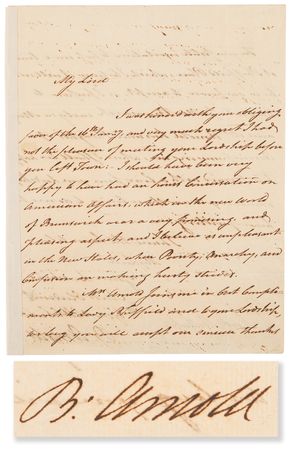 My Lord
I was honord with your obliging
favor of the 16th Jany. and very much regret I had
not the pleasure of meeting your Lordship before
you left Town: I should have been very
happy to have had an hours Conversation on
American Affairs, which in the new World
of Brunswick wear a very promising and
pleasing aspect, and I believe as unpleasant
in the New States, where Poverty, Anarchy, and
Confusion are making hasty strides.
Mrs. Arnold Joins me in best Comple-
ments to Lady Sheffield and to your Lordship,
and beg you will accept our sincere thanks
B. Arnold